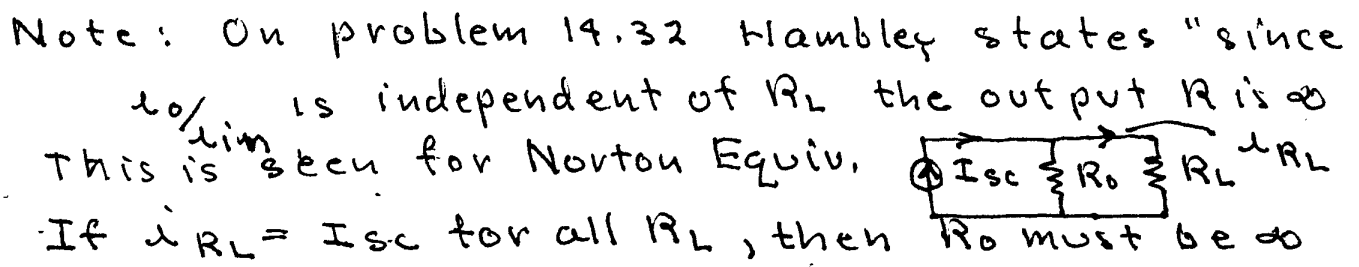 Note: On problem 14.32 Hambley states "since
io/iin is independent of RL the output R is ∞
This is seen for Norton Equiv. Isc Ro RL iRL
If iRL = Isc for all RL, then Ro must be ∞